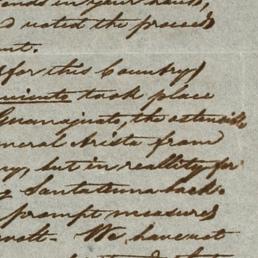 ends in your hands,
d noted the proceed
ent.
for this Country
took place
Guanajuato, the ostensible
neral Arista from
ry, but in reallity for
g Santa Anna back.
prompt measures
volt. We have not